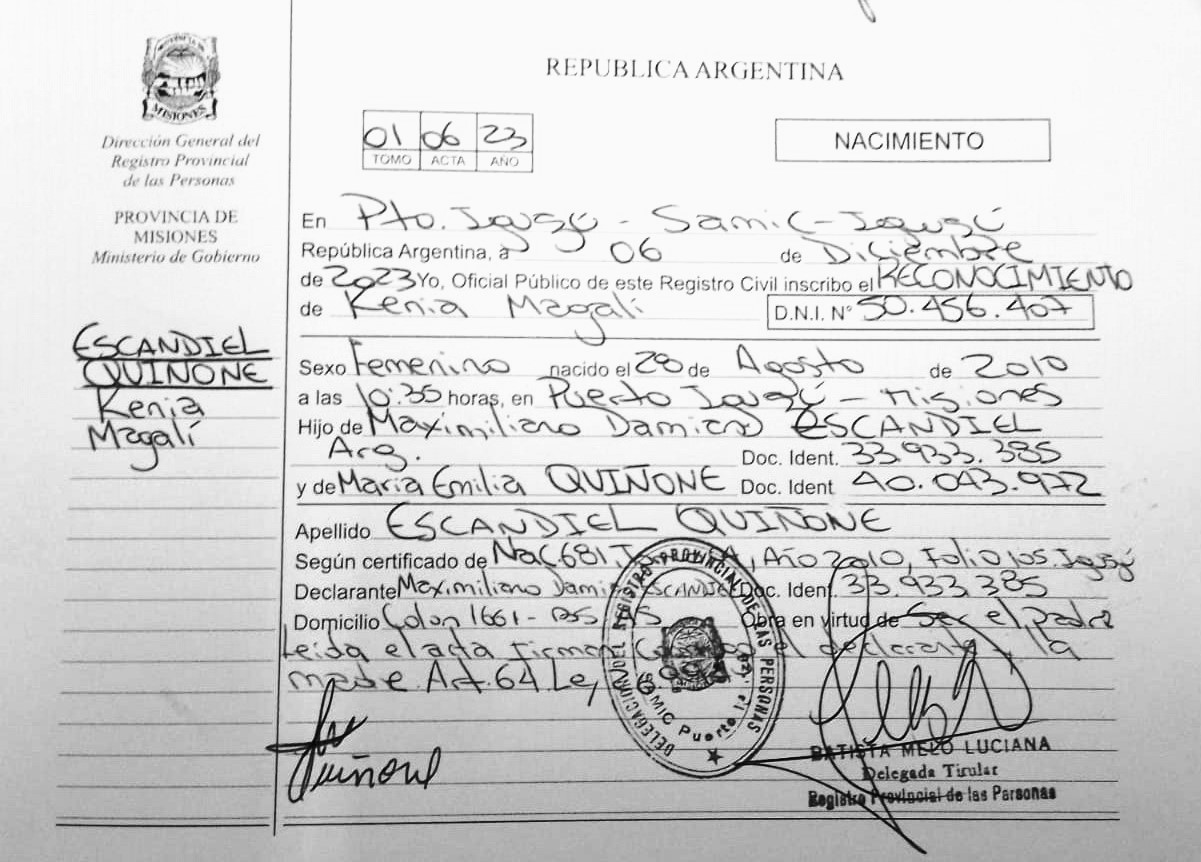 PROVINCIA DE
MISIONES
Dirección General del
Registro Provincial
de las Personas
PROVINCIA DE
MISIONES
Ministerio de Gobierno
ESCANDIEL
QUIÑONE
Kenia
Magalí
REPUBLICA ARGENTINA
01 06 23
TOMO ACTA AÑO
NACIMIENTO
En Pto. Iguazú - Samic - Iguazú
República Argentina, a 06 de Diciembre
de 2023 Yo, Oficial Público de este Registro Civil inscribo el RECONOCIMIENTO
de Kenia Magalí D.N.I. N° 50.456.407
Sexo Femenino nacido el 28 de Agosto de 2010
a las 10:35 horas, en Puerto Iguazú - Misiones
Hijo de Maximiliano Damian ESCANDIEL
Arg. Doc. Ident. 33.933.385
y de Maria Emilia QUIÑONE Doc. Ident 40.043.972
Apellido ESCANDIEL QUIÑONE
Según certificado de Nac 681, Año 2010, Folio 105. Iguazú
Declarante Maximiliano ESCANDIEL Doc. Ident. 33.933.385
Domicilio Colon 1661 - Obra en virtud de Ser el padre
leida el acta firman el declarante, la
madre. Art. 64 Ley
DELEGACION DEL REGISTRO PROVINCIAL DE LAS PERSONAS
SAMIC Puerto
Quiñone
BATISTA MELO LUCIANA
Delegada Titular
Registro Provincial de las Personas